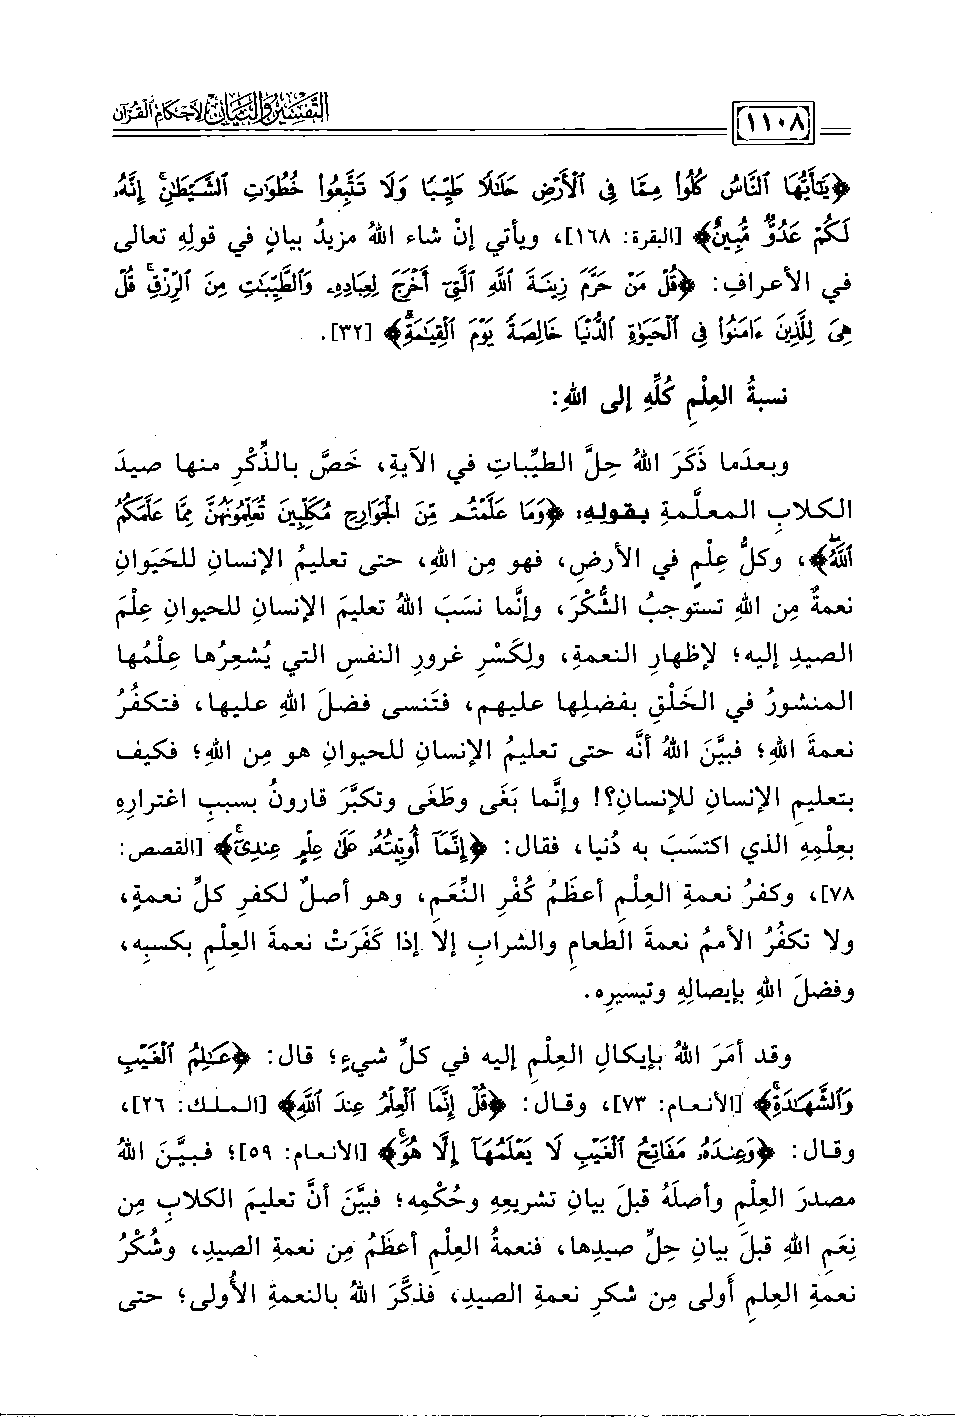 التفسير والبيان لأحكام القرآن
١١٠٨
﴿يَٰٓأَيُّهَا ٱلنَّاسُ كُلُوا۟ مِمَّا فِى ٱلْأَرْضِ حَلَٰلًا طَيِّبًا وَلَا تَتَّبِعُوا۟ خُطُوَٰتِ ٱلشَّيْطَٰنِ ۚ إِنَّهُۥ
لَكُمْ عَدُوٌّ مُّبِينٌ﴾ [البقرة: ١٦٨]، ويأتي إنْ شاء اللهُ مزيدُ بيانٍ في قولِهِ تعالى
في الأعرافِ: ﴿قُلْ مَنْ حَرَّمَ زِينَةَ ٱللَّهِ ٱلَّتِىٓ أَخْرَجَ لِعِبَادِهِۦ وَٱلطَّيِّبَٰتِ مِنَ ٱلرِّزْقِ ۚ قُلْ
هِىَ لِلَّذِينَ ءَامَنُوا۟ فِى ٱلْحَيَوٰةِ ٱلدُّنْيَا خَالِصَةً يَوْمَ ٱلْقِيَٰمَةِ ۗ﴾ [٣٢].
نسبةُ العِلْمِ كُلِّهِ إلى اللهِ:
وبعدَما ذَكَرَ اللهُ حِلَّ الطيِّباتِ في الآيةِ، خَصَّ بالذِّكْرِ منها صيدَ
الكلابِ المعلَّمةِ بقولِهِ: ﴿وَمَا عَلَّمْتُم مِّنَ ٱلْجَوَارِحِ مُكَلِّبِينَ تُعَلِّمُونَهُنَّ مِمَّا عَلَّمَكُمُ
ٱللَّهُ ۖ﴾، وكلُّ عِلْمٍ في الأرضِ، فهو مِن اللهِ، حتى تعليمُ الإنسانِ للحَيَوانِ
نعمةٌ مِن اللهِ تستوجبُ الشُّكْرَ، وإنَّما نسَبَ اللهُ تعليمَ الإنسانِ للحيوانِ عِلْمَ
الصيدِ إليه؛ لإظهارِ النعمةِ، ولِكَسْرِ غرورِ النفسِ التي يُشعِرُها عِلْمُها
المنشورُ في الخَلْقِ بفضلِها عليهم، فتَنسى فضلَ اللهِ عليها، فتكفُرُ
نعمةَ اللهِ؛ فبيَّنَ اللهُ أنَّه حتى تعليمُ الإنسانِ للحيوانِ هو مِن اللهِ؛ فكيف
بتعليمِ الإنسانِ للإنسانِ؟! وإنَّما بَغَى وطَغَى وتكبَّرَ قارونُ بسببِ اغترارِهِ
بعِلْمِهِ الذي اكتسَبَ به دُنياه، فقال: ﴿إِنَّمَآ أُوتِيتُهُۥ عَلَىٰ عِلْمٍ عِندِىٓ ۚ﴾ [القصص:
٧٨]، وكفرُ نعمةِ العِلْمِ أعظَمُ كُفْرِ النِّعَمِ، وهو أصلٌ لكفرِ كلِّ نعمةٍ،
ولا تكفُرُ الأممُ نعمةَ الطعامِ والشرابِ إلا إذا كَفَرَتْ نعمةَ العِلْمِ بكسبِه،
وفضلَ اللهِ بإيصالِهِ وتيسيرِه.
وقد أمَرَ اللهُ بإيكالِ العِلْمِ إليه في كلِّ شيءٍ؛ قال: ﴿عَٰلِمُ ٱلْغَيْبِ
وَٱلشَّهَٰدَةِ ۚ﴾ [الأنعام: ٧٣]، وقال: ﴿قُلْ إِنَّمَا ٱلْعِلْمُ عِندَ ٱللَّهِ﴾ [الملك: ٢٦]،
وقال: ﴿وَعِندَهُۥ مَفَاتِحُ ٱلْغَيْبِ لَا يَعْلَمُهَآ إِلَّا هُوَ ۚ﴾ [الأنعام: ٥٩]؛ فبيَّنَ اللهُ
مصدرَ العِلْمِ وأصلَهُ قبلَ بيانِ تشريعِهِ وحُكْمِه؛ فبيَّنَ أنَّ تعليمَ الكلابِ مِن
نِعَمِ اللهِ قبلَ بيانِ حِلِّ صيدِها، فنعمةُ العِلْمِ أعظَمُ مِن نعمةِ الصيدِ، وشُكْرُ
نعمةِ العِلمِ أَولى مِن شكرِ نعمةِ الصيدِ، فذكَّرَ اللهُ بالنعمةِ الأُولى؛ حتى